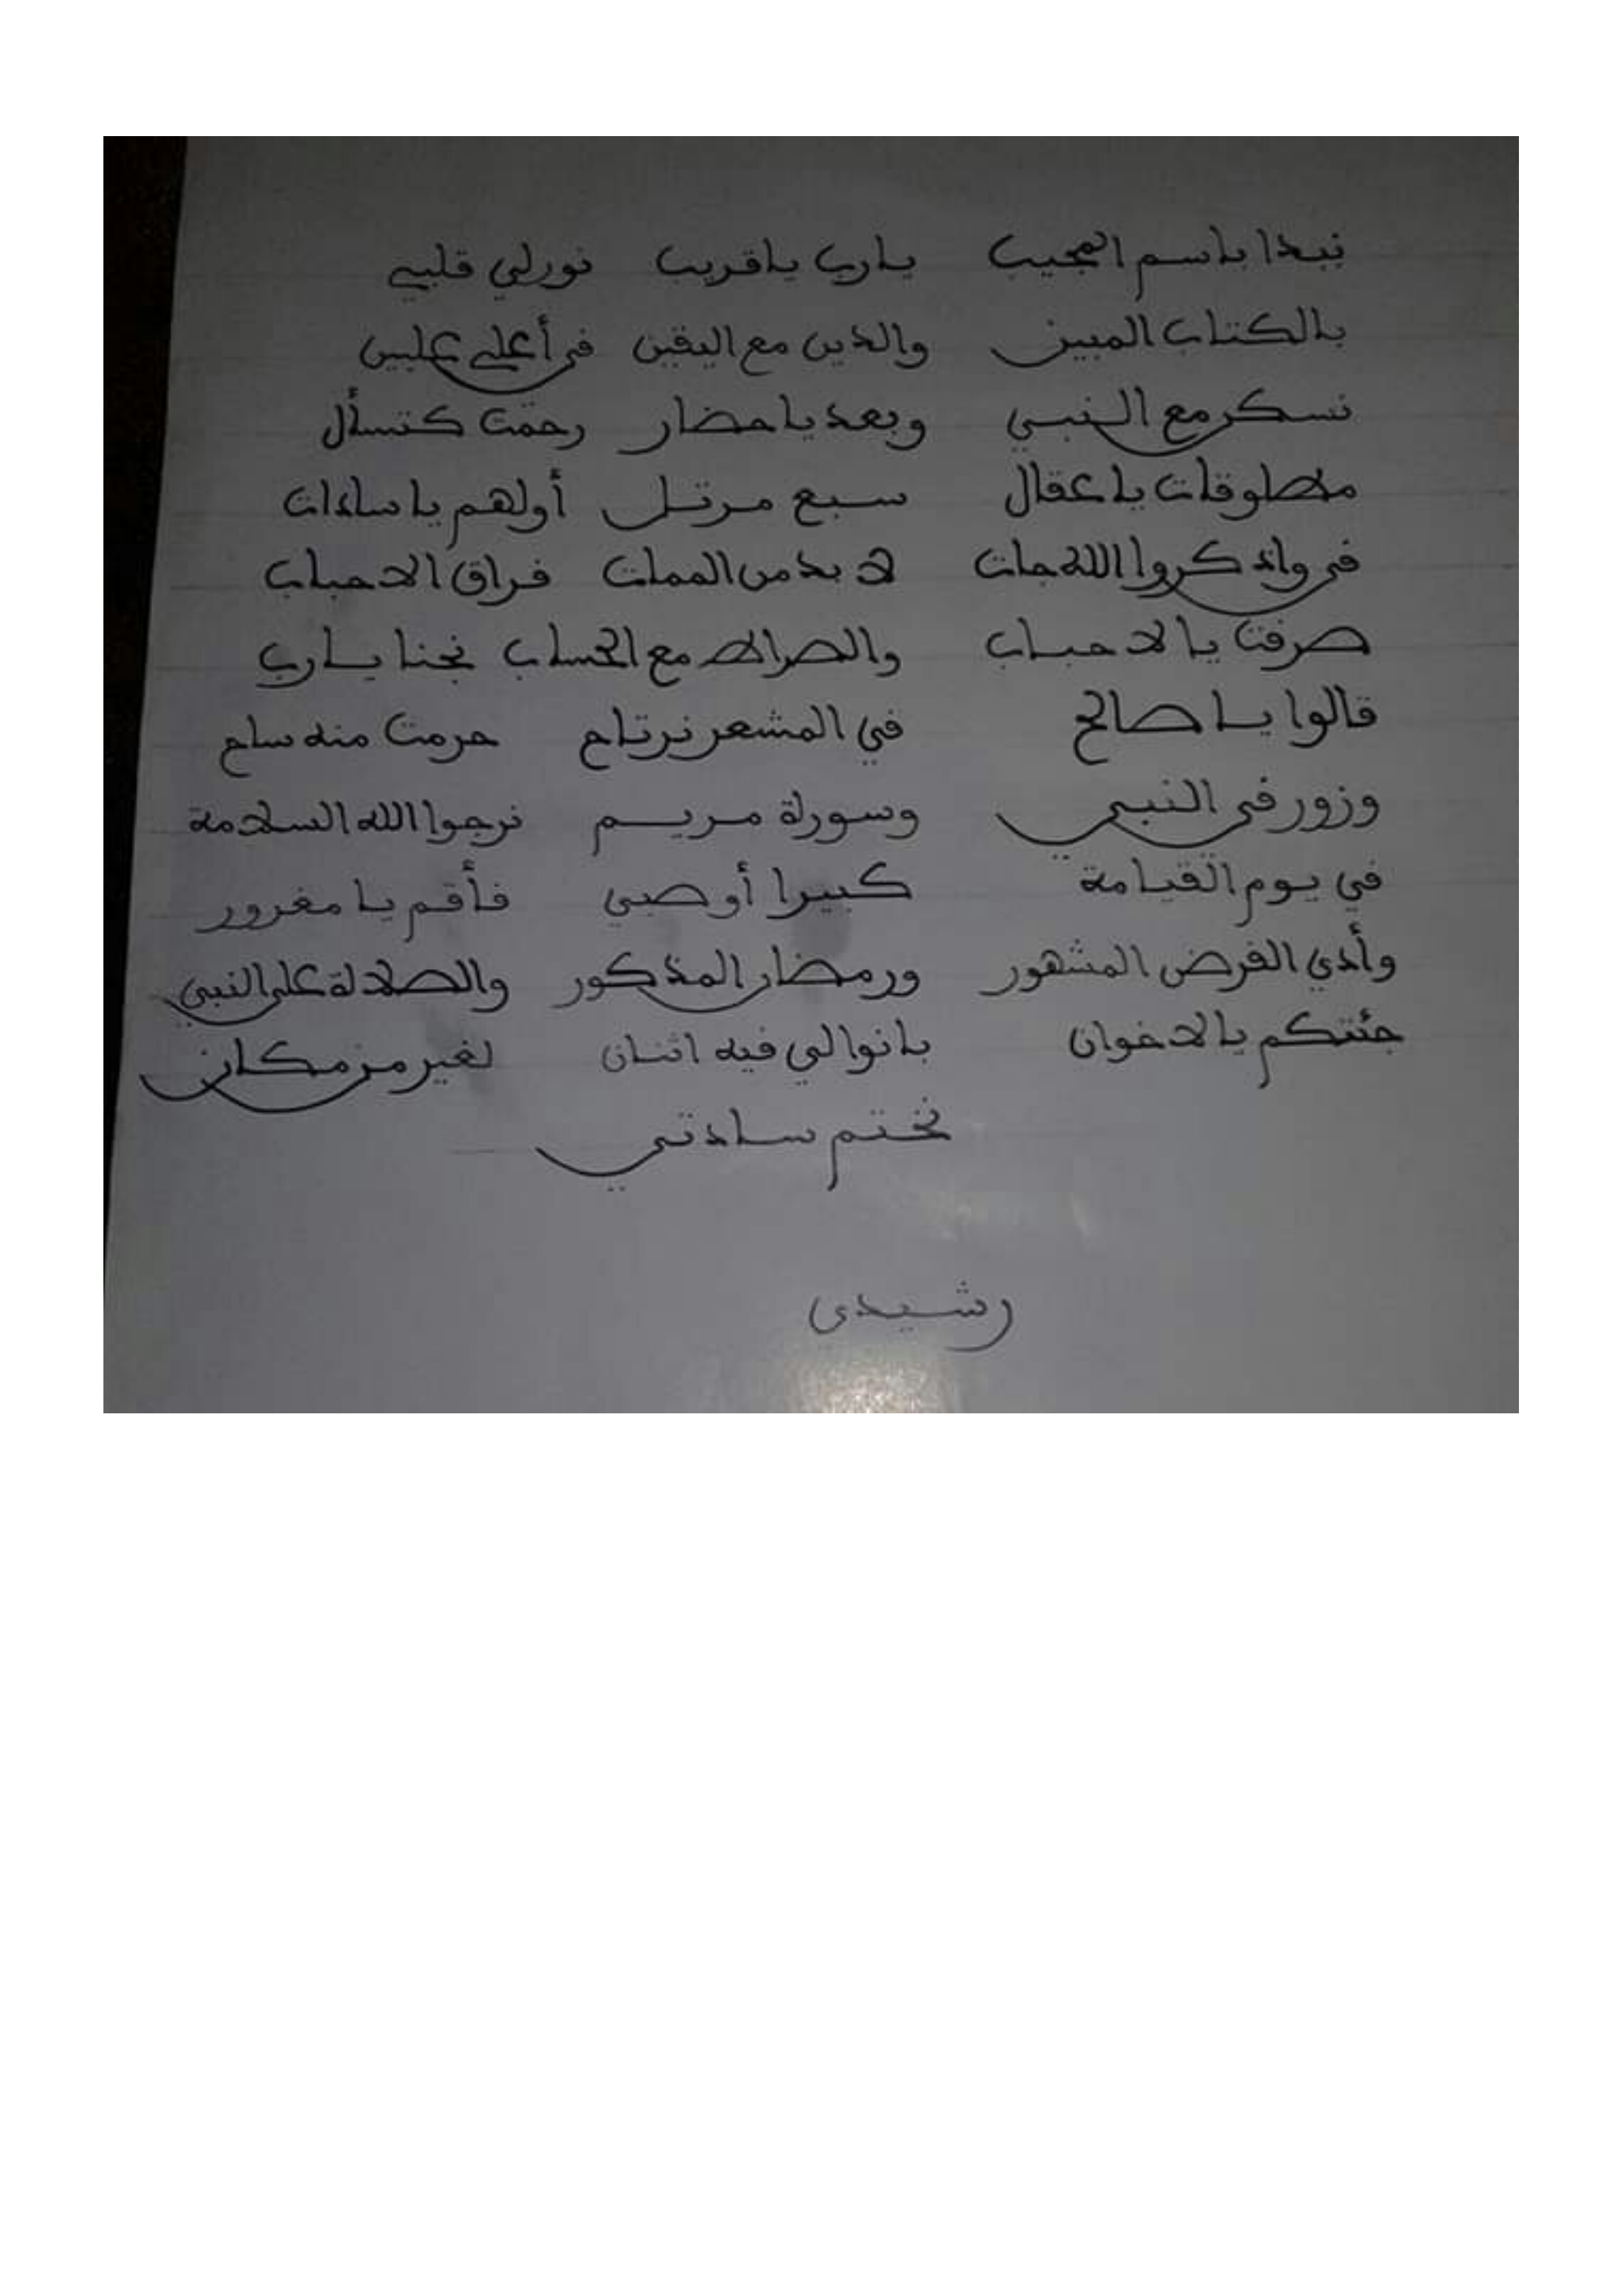 نبدا باسم المجيب يارب ياقريب نورلي قلبي
بالكتاب المبين والدين مع اليقين في أعلى عليين
نسكر مع النبي وبعد يا حضار رحمت كتسأل
مخلوقات يا عقال سبع مرتل أولهم يا سادات
في واذكروا الله جات لا بد من الممات فراق الاحباب
صرفت يا لاحباب والصراط مع الحساب نجنا يارب
قالوا يا صالح في المشعر نرتاح حرمت منه ساح
وزور في النبي وسورة مريم نرجوا الله السلامة
في يوم القيامة كبيرا أو صبي فأقم يا مغرور
وأدي الفرض المشهور ورمضان المذكور والصلاة على النبي
جئتكم يا لاخوان بانوا لي فيه اثنان لغير من مكان
نختم سادتي
رشيدي